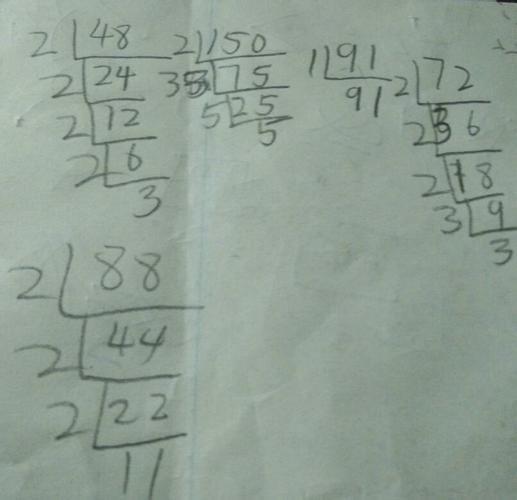 2 48
2 24
2 12
2 6
3
2 150
3 75
5 25
5
1 91
91
2 72
2 36
2 18
3 9
3
2 88
2 44
2 22
11